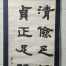 清儉足
貞正足